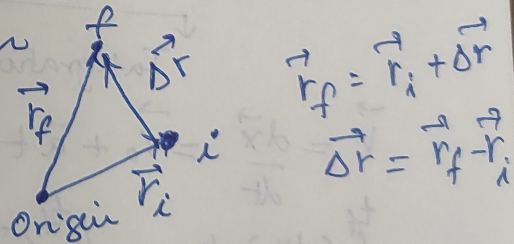 f
\vec{r}_f
\vec{\Delta r}
i
\vec{r}_i
Origin
\vec{r}_f = \vec{r}_i + \vec{\Delta r}
\vec{\Delta r} = \vec{r}_f - \vec{r}_i